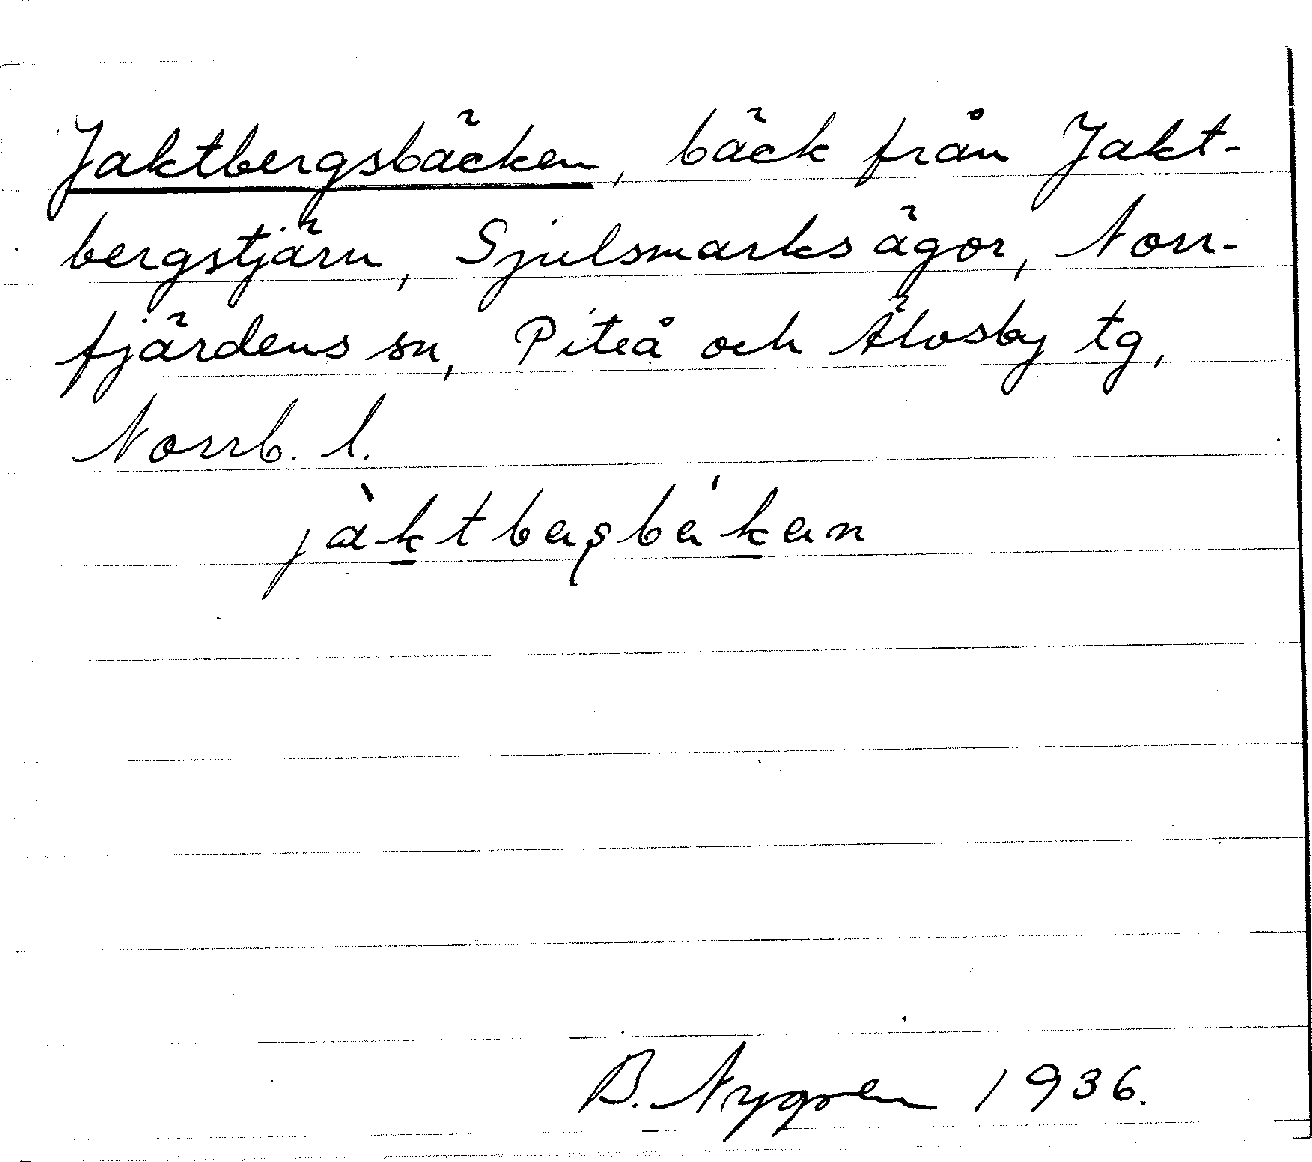 Jaktbergsbäcken, bäck från Jakt-
bergstjärn, Sjulsmarks ägor, Norr-
fjärdens sn, Piteå och Älvsby tg,
Norrb. l.
jàktbasbákan
B. Nygren 1936.